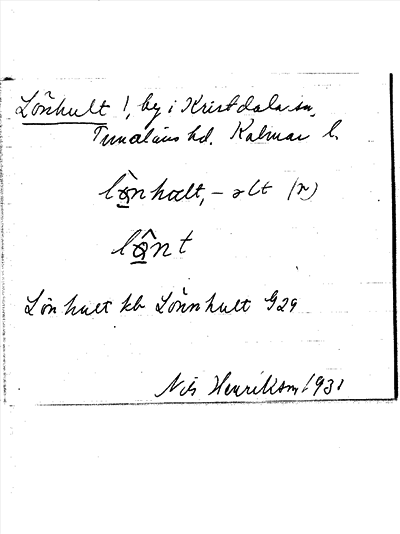 Lönhult !, by i Kristdala sn,
Tunaläns hd. Kalmar l.
lo᷄nhælt, – əlt (n)
lôn t
Lönhult kb Lönnhult G29
Nils Henrikson 1931